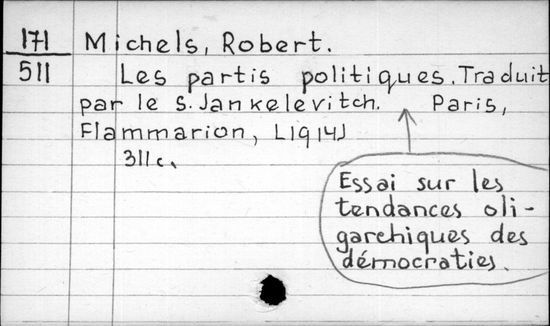 171 Michels, Robert.
511 Les partis politiques. Traduit
par le S. Jankelevitch. Paris,
Flammarion, [1914]
311 c.
Essai sur les
tendances oli-
garchiques des
démocraties.